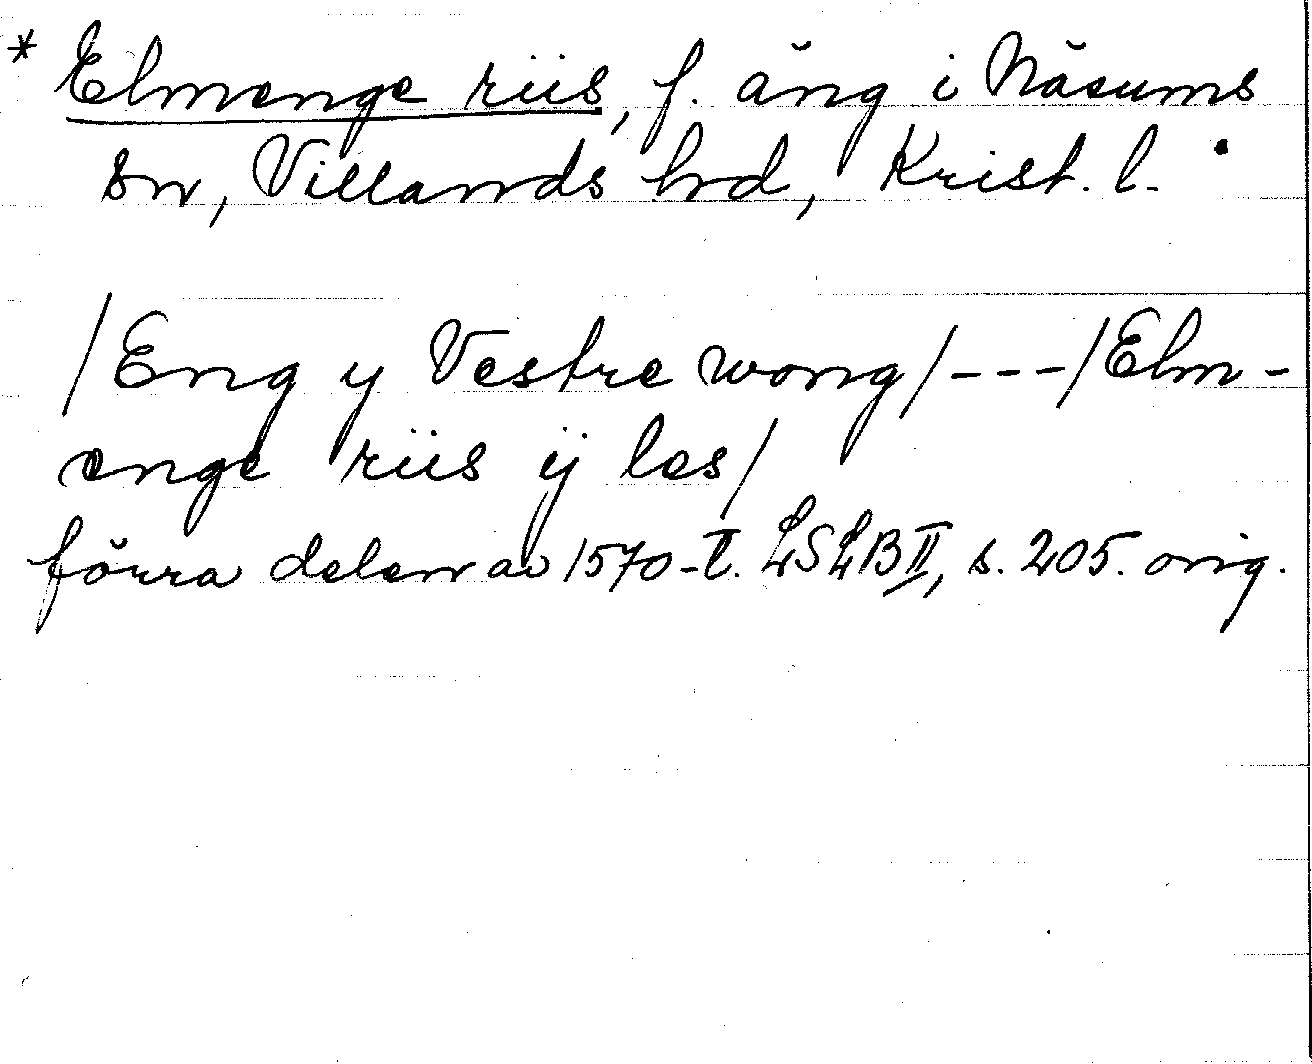 * Elmenge riis, f. äng i Näsums
sn, Villands hrd, Krist. l.
/Eng y Vestre wong/---/Elm-
enge riis ÿ les/
förra delen av 1570-t. LSLB II, s. 205. orig.